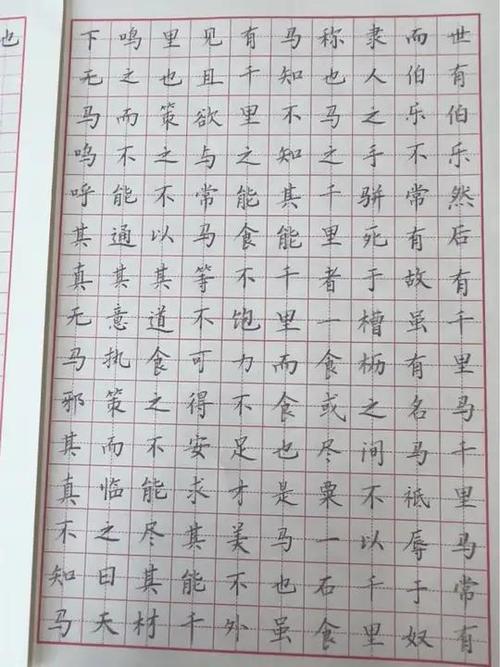 世有伯乐然后有千里马千里马常有
而伯乐不常有故虽有名马祗辱于奴
隶人之手骈死于槽枥之间不以千里
称也马之千里者一食或尽粟一石食
马知不知其能千里而食也是马也虽
有千里之能食不饱力不足才美不外
见且欲与常马等不可得安求其能千
里也策之不以其道食之不能尽其材
鸣之而不能通其意执策而临之曰天
下无马呜呼其真无马邪其真不知马
也